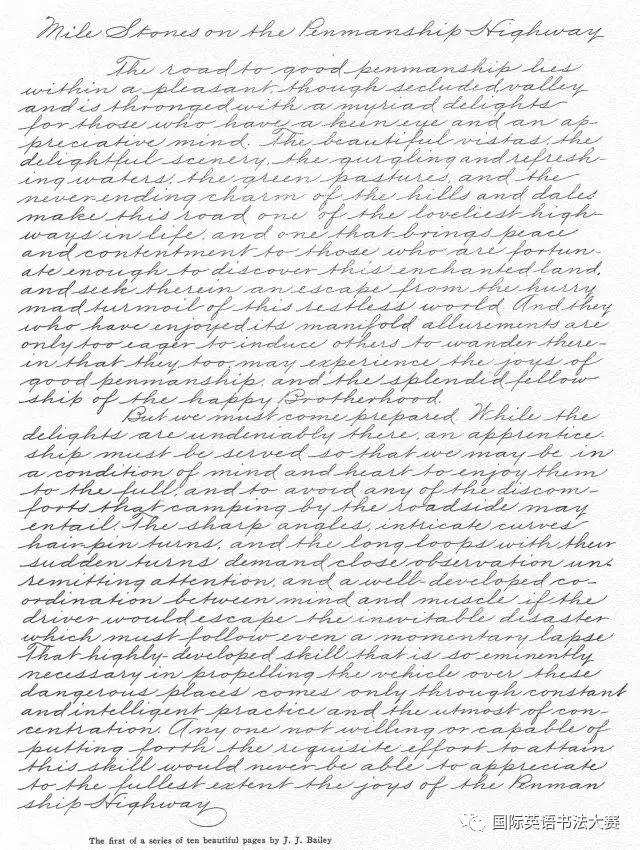 Mile Stones on the Penmanship Highway
The road to good penmanship lies
within a pleasant, though secluded, valley
and is thronged with a myriad delights
for those who have a keen eye and an ap-
preciative mind. The beautiful vistas, the
delightful scenery, the gurgling and refresh-
ing waters, the green pastures, and the
never-ending charm of the hills and dales
make this road one of the loveliest high-
ways in life, and one that brings peace
and contentment to those who are fortun-
ate enough to discover this enchanted land,
and seek therein an escape from the hurry
mad turmoil of this restless world. And they
who have enjoyed its manifold allurements are
only too eager to induce others to wander there-
in that they too, may experience the joys of
good penmanship, and the splendid fellow
ship of the happy Brotherhood.
But we must come prepared. While the
delights are undeniably there, an apprentice-
ship must be served so that we may be in
a condition of mind and heart to enjoy them
to the full, and to avoid any of the discom-
forts that camping by the roadside may
entail. The sharp angles, intricate curves
hairpin turns, and the long loops with their
sudden turns demand close observation un-
remitting attention, and a well-developed co-
ordination between mind and muscle if the
driver would escape the inevitable disaster
which must follow even a momentary lapse
That highly-developed skill that is so eminently
necessary in propelling the vehicle over these
dangerous places comes only through constant
and intelligent practice and the utmost of con-
centration. Any one not willing or capable of
putting forth the requisite effort to attain
this skill would never be able to appreciate
to the fullest extent the joys of the Penman
ship Highway
The first of a series of ten beautiful pages by J. J. Bailey
国际英语书法大赛